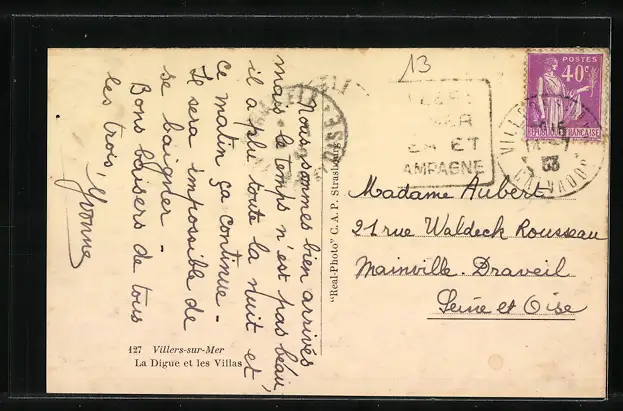 Nous sommes bien arrivés
mais le temps n'est pas beau,
il a plu toute la nuit et
ce matin ça continue -
Il sera impossible de
se baigner -
Bons baisers de tous
les trois,
Yvonne
127 Villers-sur-Mer
La Digue et les Villas
"Real-Photo" C. A. P. Strasbourg
13
ER
ET
AMPAGNE
POSTES
40c
REPUBLIQUE FRANÇAISE
Madame Aubert
21 rue Waldeck Rousseau
Mainville-Draveil
Seine et Oise